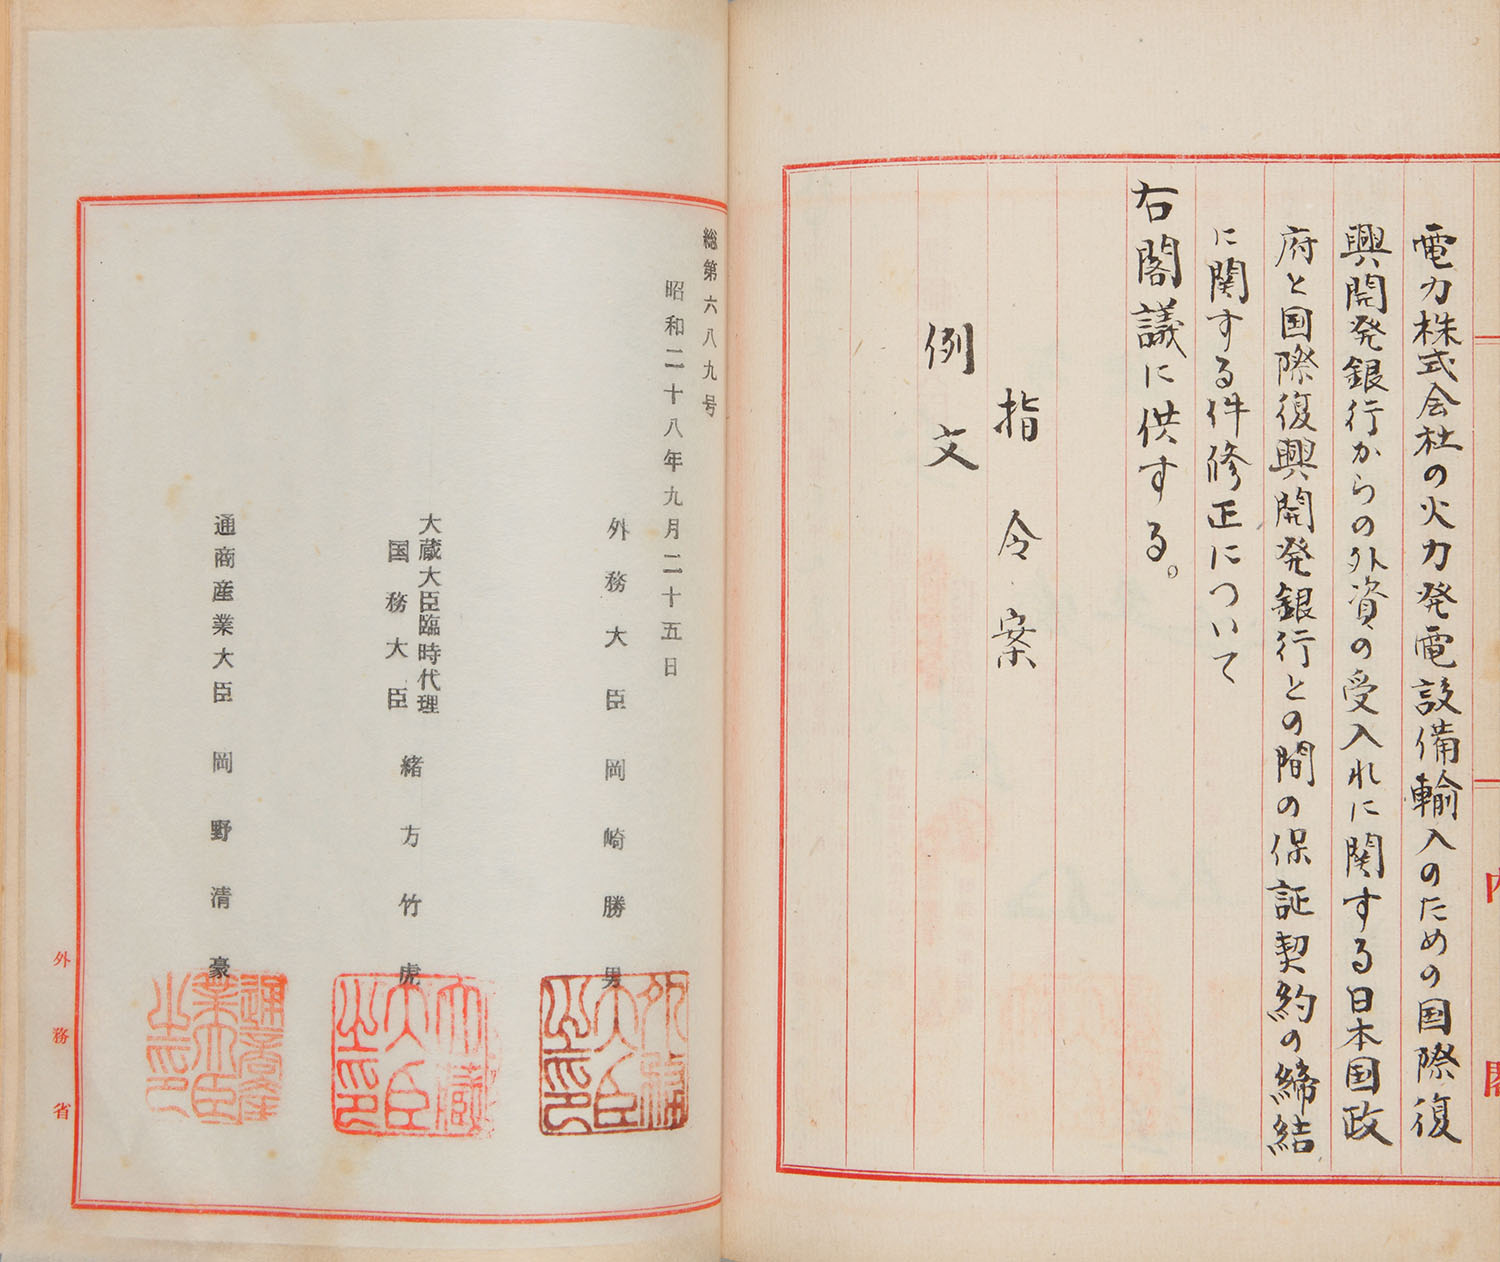 電力株式会社の火力発電設備輸入のための国際復
興開発銀行からの外資の受入れに関する日本国政
府と国際復興開発銀行との間の保証契約の締結
に関する件修正について
右閣議に供する。
指令案
例文
内閣
総第六八九号
昭和二十八年九月二十五日
外務大臣 岡崎勝男
外務大臣之印
大蔵大臣臨時代理
国務大臣 緒方竹虎
大蔵大臣之印
通商産業大臣 岡野清豪
通商産業大臣之印
外務省